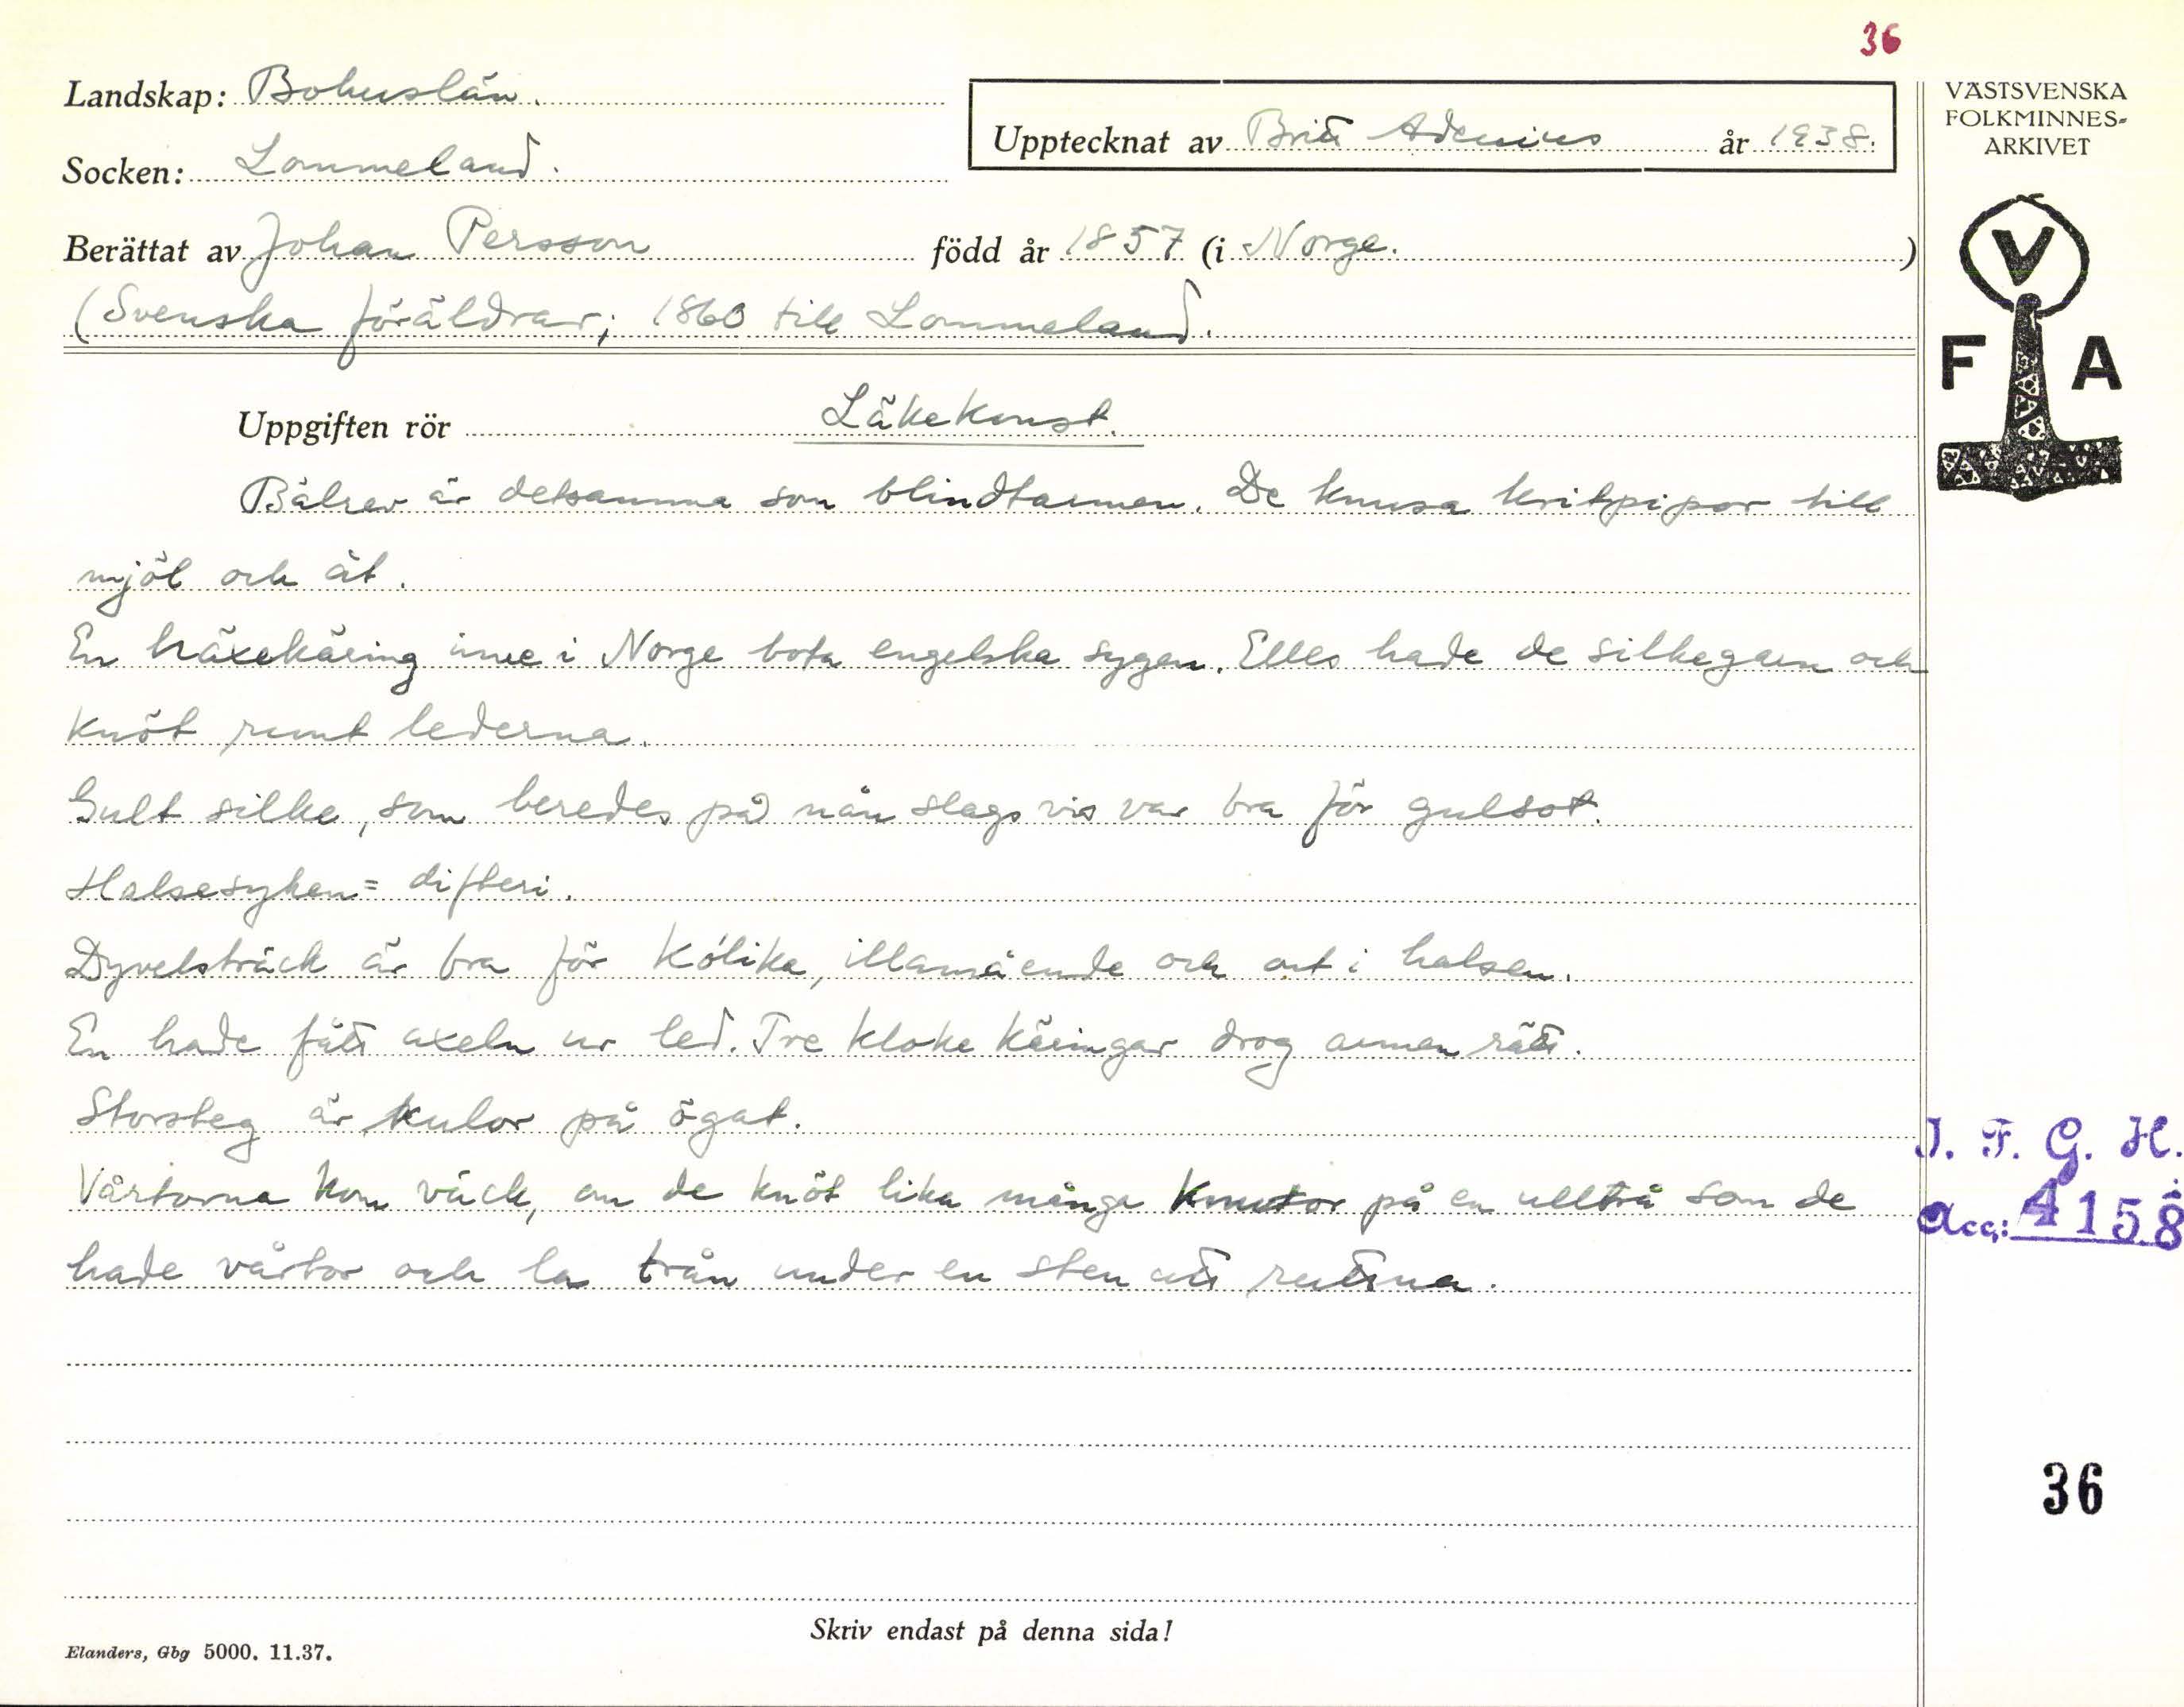 36
Landskap: Bohuslän.
Socken: Lommeland.
Upptecknat av Britt Adenius år 1938.
Berättat av Johan Persson född år 1857 (i Norge.)
(Svenska föräldrar; 1860 till Lommeland.
VÄSTSVENSKA
FOLKMINNES-
ARKIVET
V
F A
Uppgiften rör Läkekonst.
Bålrev är detsamma som blindtarmen. De knusa kritpipor till
mjöl och åt.
En häxekäring inne i Norge bota engelska sygen. Elles hade de silkegarn och
knöt runt lederna.
Gult silke, som beredes på nån slags vis var bra för gulsot.
Halsesyken = difteri.
Dyvelsträck är bra för kólika, illamående och ont i halsen.
En hade fått axeln ur led. Tre kloke käringar drog armen rätt.
Storsteg är kulor på ögat.
Vårtorna kom väck, om de knöt lika många knutor på en ulltrå som de
hade vårtor och la trån under en sten att ruttna.
J. F. G. H.
Acc: 4158
36
Skriv endast på denna sida!
Elanders, Gbg 5000. 11.37.